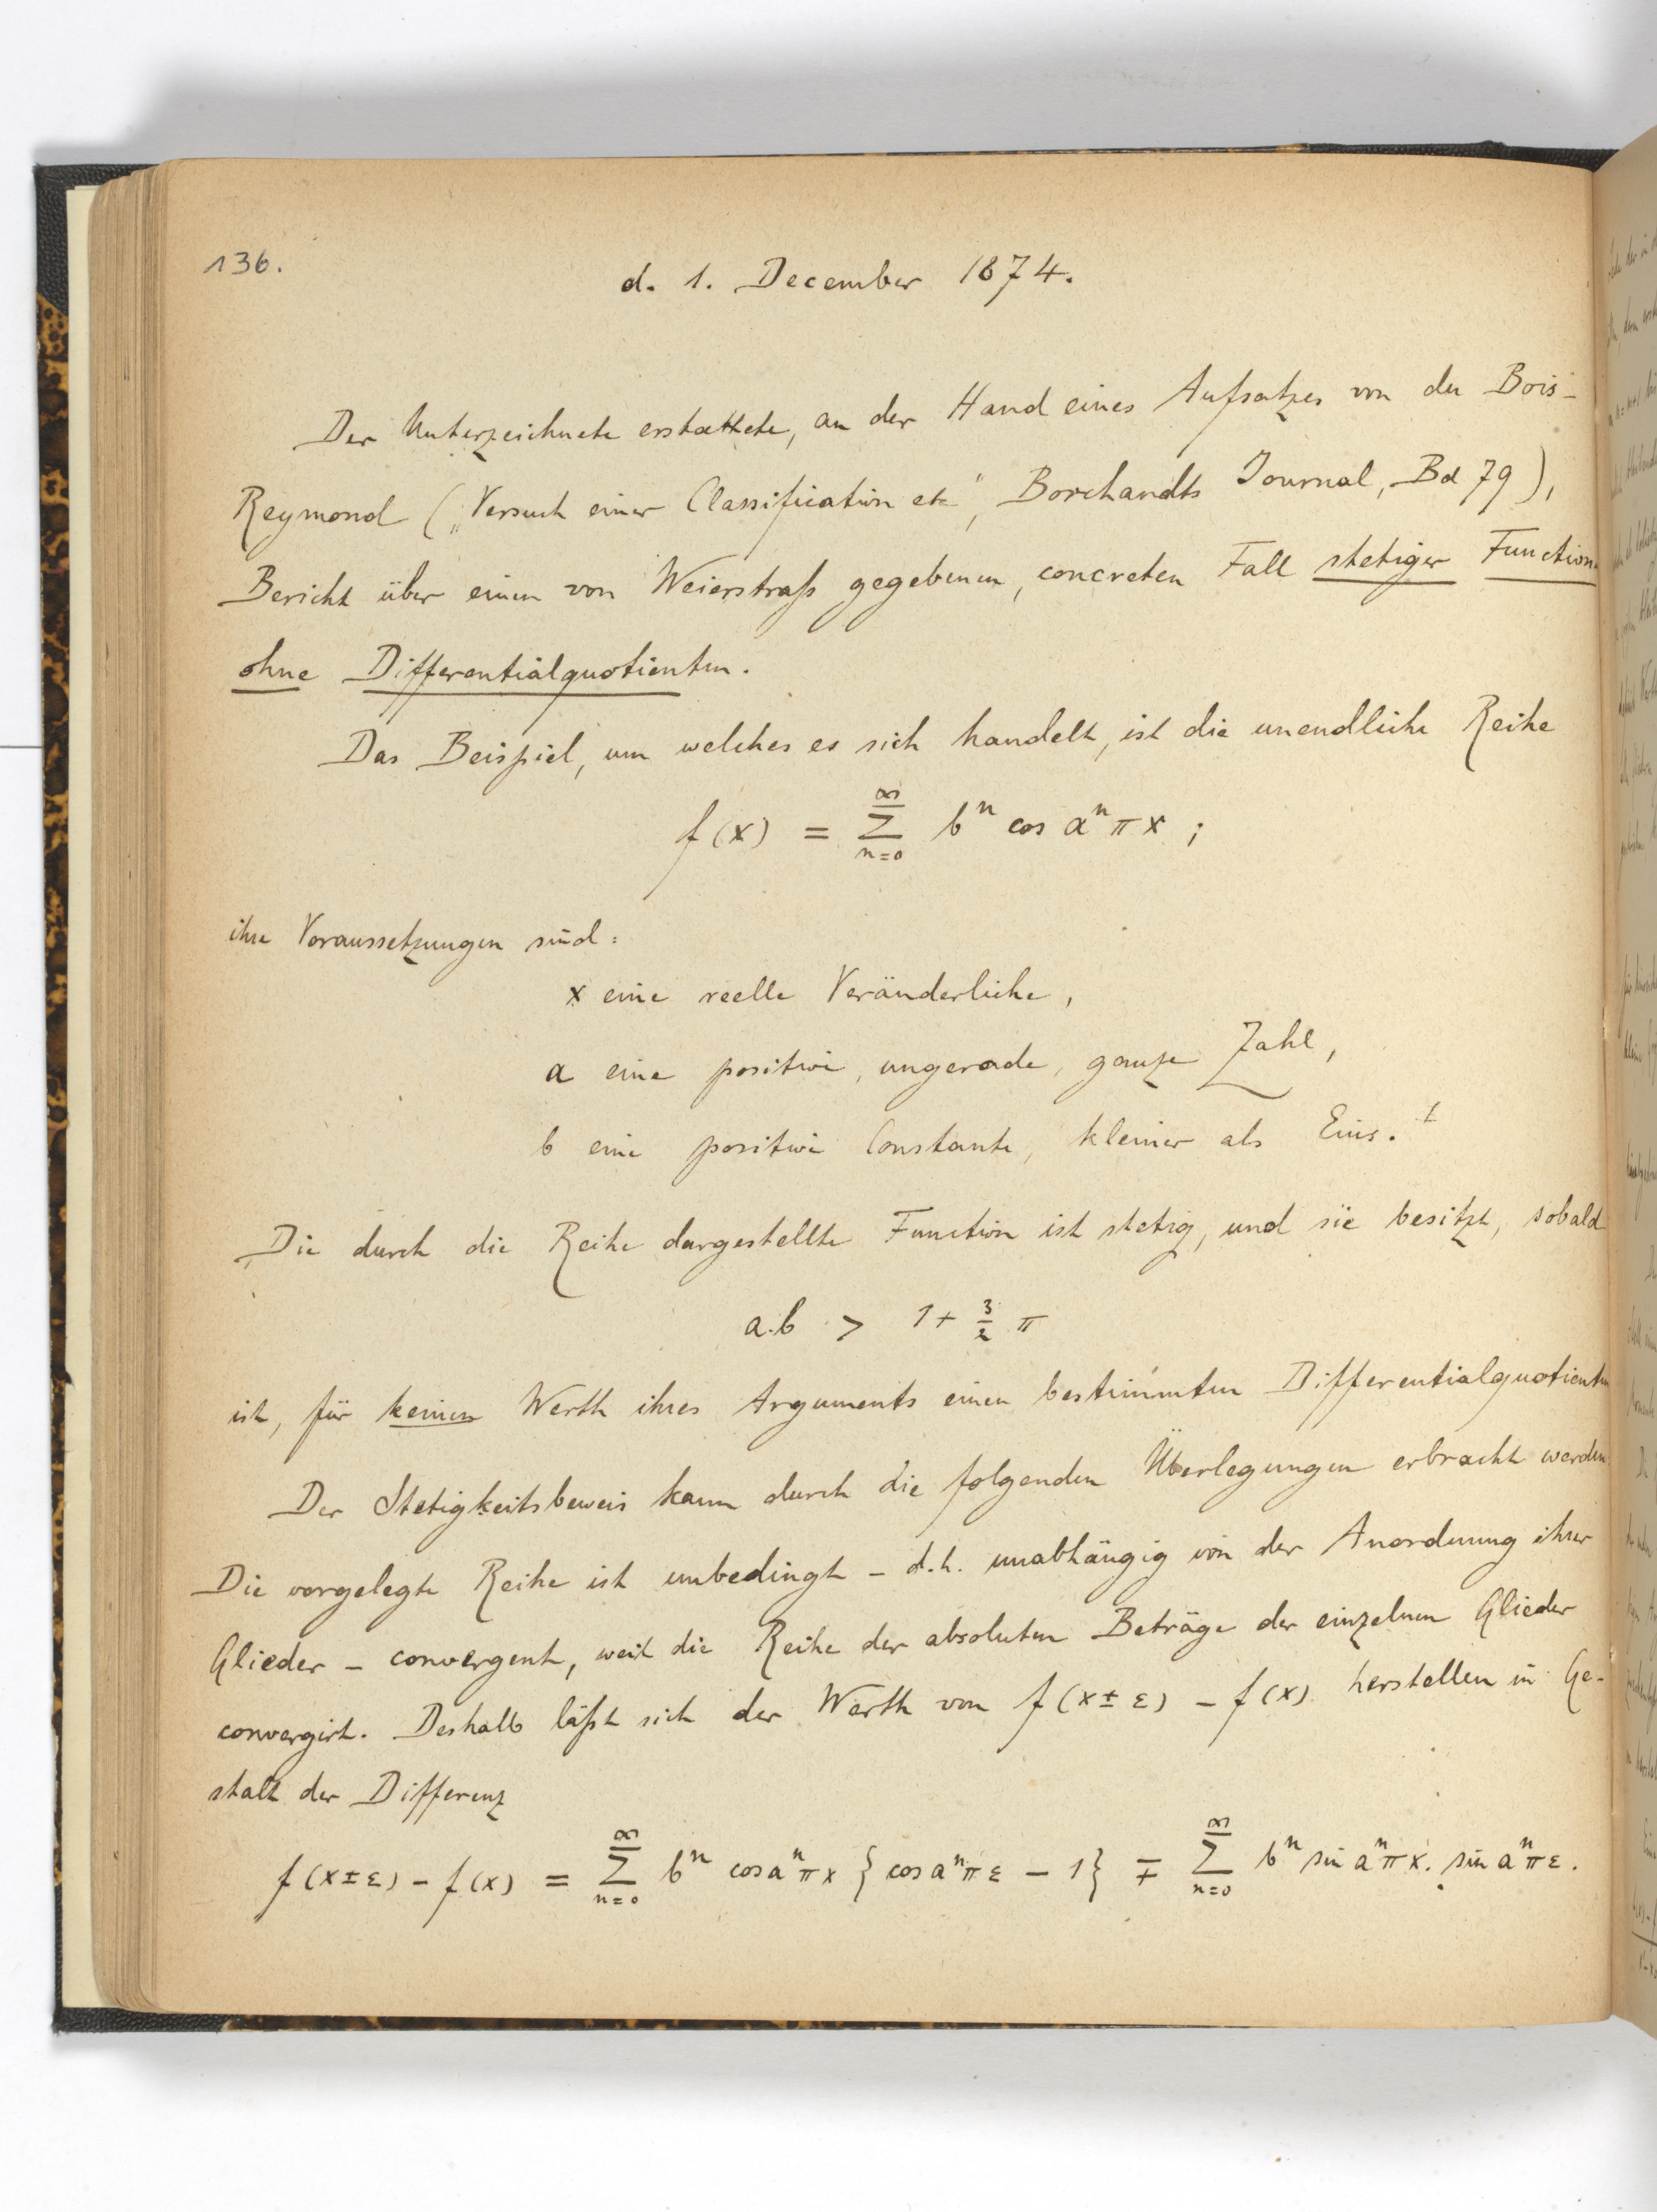 136.
d. 1. December 1874.
Der Unterzeichnete erstattete, an der Hand eines Aufsatzes von du Bois-
Reymond („Versuch einer Classification etc“, Borchardts Journal, Bd 79),
Bericht über einen von Weierstraß gegebenen, concreten Fall stetiger Function
ohne Differentialquotienten.
Das Beispiel, um welches es sich handelt, ist die unendliche Reihe
f(x) = ∑_{n=0}^{∞} bⁿ cos aⁿ π x ;
ihre Voraussetzungen sind:
x eine reelle Veränderliche,
a eine positive, ungerade, ganze Zahl,
b eine positive Constante, kleiner als Eins.
Die durch die Reihe dargestellte Function ist stetig, und sie besitzt, sobald
a.b > 1 + 3/2 π
ist, für keinen Werth ihres Arguments einen bestimmten Differentialquotienten
Der Stetigkeitsbeweis kann durch die folgenden Überlegungen erbracht werden
Die vorgelegte Reihe ist unbedingt – d.h. unabhängig von der Anordnung ihrer
Glieder – convergent, weil die Reihe der absoluten Beträge der einzelnen Glieder
convergirt. Deshalb läßt sich der Werth von f(x±ε) – f(x) herstellen in Ge-
stalt der Differenz
f(x±ε) – f(x) = ∑_{n=0}^{∞} bⁿ cos aⁿπx {cos aⁿπε – 1} ∓ ∑_{n=0}^{∞} bⁿ sin aⁿπx. sin aⁿπε.